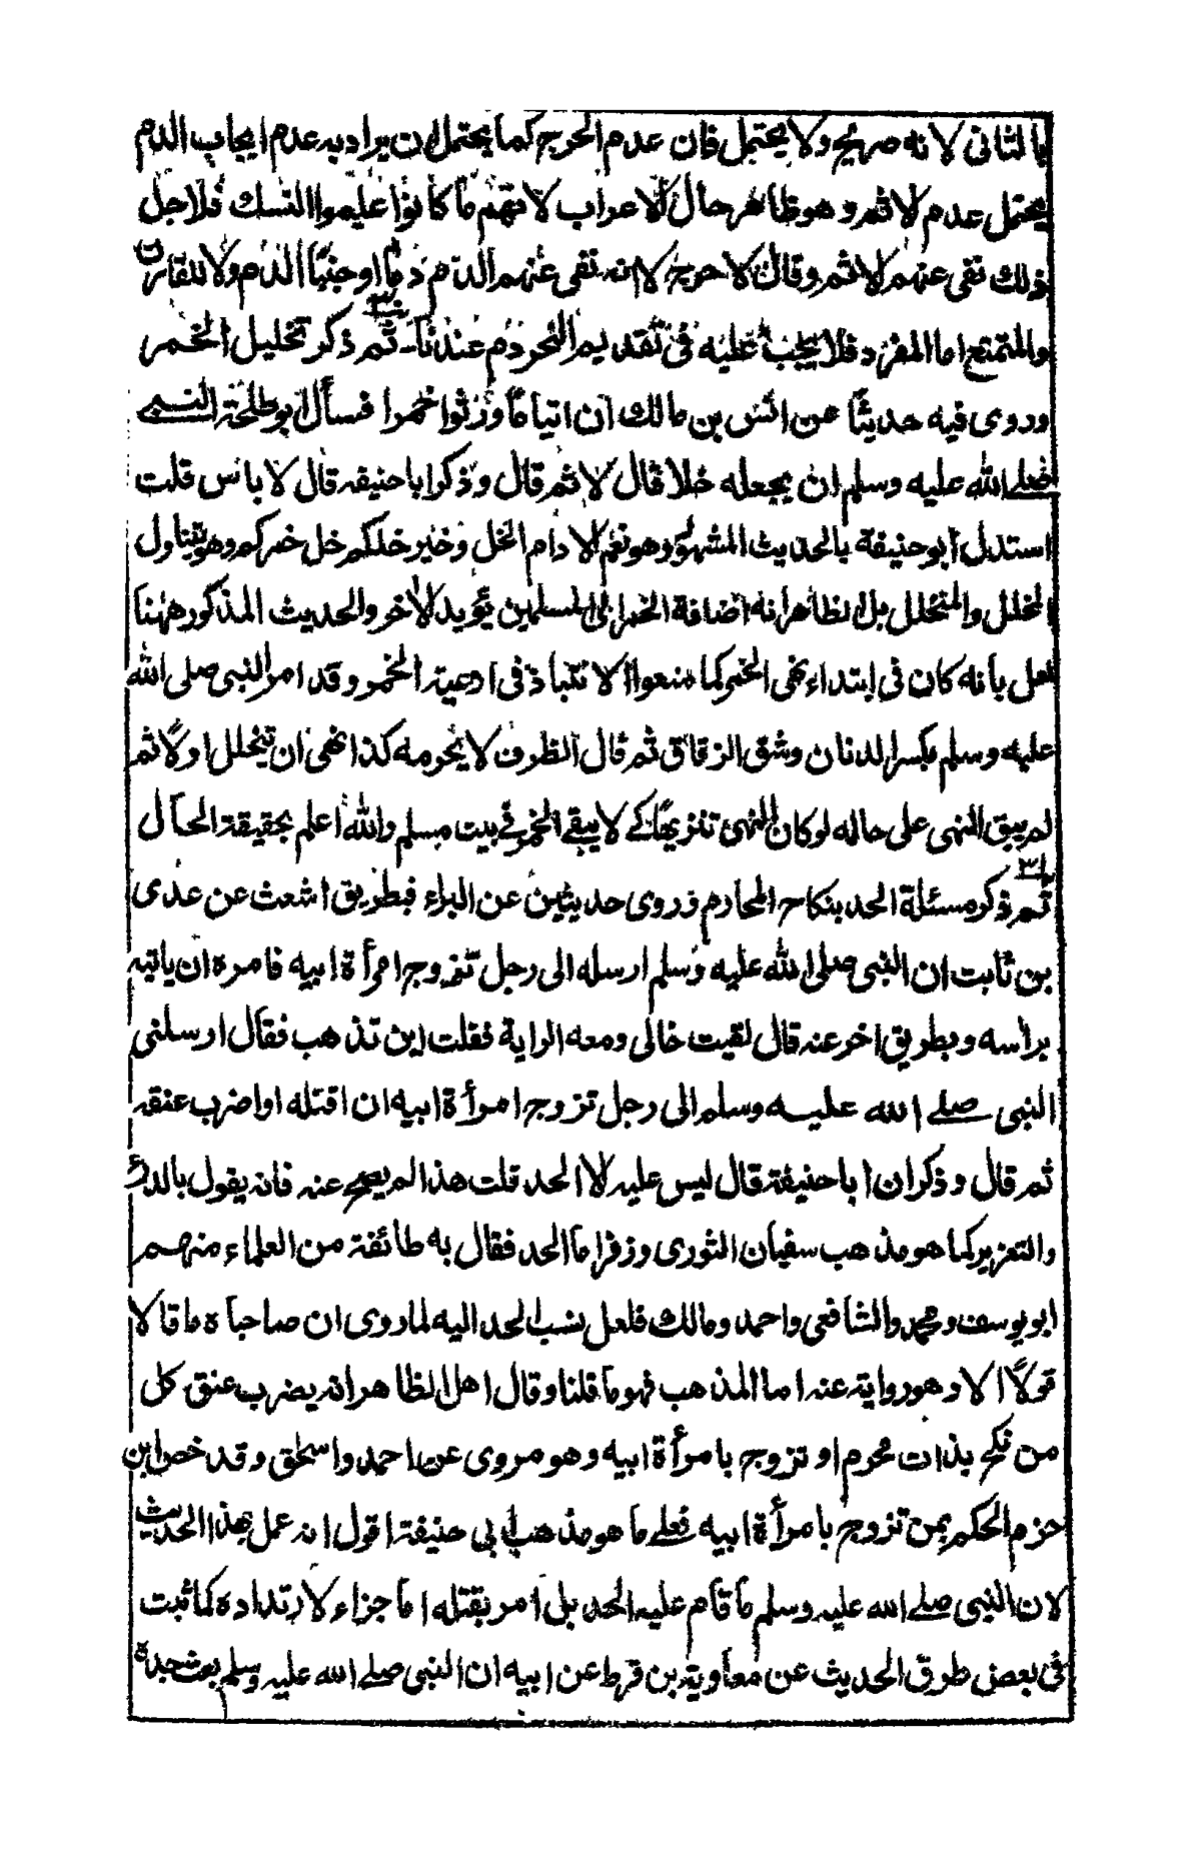 بالثانى لانه صريح ولا يحتمل فان عدم الحرج كما يحتمل ان يراد به عدم ايجاب الدم
يحتمل عدم الاثم وهو ظاهر حال الاعراب لانهم ما كانوا عليموا النسك فلاجل
ذلك نفى عنهم الاثم وقال لا حرج لا انه نفى عنهم الدم وما اوجبنا الدم ولا للقارن
والمتمتع اما المفرد فلا يجب عليه فى تقديم النحر دم عندنا۔ ثم ذكر تخليل الخمر
وروى فيه حديثا عن انس بن مالك ان ايتاما ورثوا خمرا فسأل ابو طلحة النبى
صلے الله عليه وسلم ان يجعله خلا قال لا ثم قال وذكر ابا حنيفة قال لا باس قلت
استدل ابو حنيفة بالحديث المشهور وهو نعم الادام الخل وخير خلكم خل خمركم وهو يتناول
المخلل والمتخلل بل الظاهر انه اضافة الخمر الى المسلمين يؤيد الاخر والحديث المذكور ههنا
لعل بانه كان فى ابتداء نهى الخمر كما منعوا الانتباذ فى ادعية الخمر وقد امر النبى صلى الله
عليه وسلم بكسر الدنان وشق الزقاق ثم قال الظرف لا يحرمه كذا نهى ان يتخلل اولا ثم
لم يبق النهى على حاله لو كان النهى تنزيها كے لا يبقے الخمر فے بيت مسلم والله اعلم بحقيقة الحال
ثم ذكر مسئلة الحد بنكاح المحارم وروى حديثين عن البراء فبطريق اشعث عن عدى
بن ثابت ان النبى صلى الله عليه وسلم ارسله الى رجل تزوج امرأة ابيه فامره ان ياتيه
براسه وبطريق اخر عنه قال لقيت خالى ومعه الراية فقلت اين تذهب فقال ارسلنى
النبى صلے الله عليه وسلم الى رجل تزوج امرأة ابيه ان اقتله او اضرب عنقه
ثم قال وذكر ان ابا حنيفة قال ليس عليه الا الحد قلت هذا لم يصح عنه فانه يقول بالدرء
والتعزير كما هو مذهب سفيان الثورى وزفر اما الحد فقال به طائفة من العلماء منهم
ابو يوسف ومحمد والشافعى واحمد ومالك فلعل نسب الحد اليه لما روى ان صاحباه ما قالا
قولا الا وهو رواية عنه اما المذهب فهو ما قلنا وقال اهل الظاهر انه يضرب عنق كل
من نكح بذات محرم او تزوج بامرأة ابيه وهو مروى عن احمد واسحق وقد خص ابن
حزم الحكم بمن تزوج بامرأة ابيه فعلے ما هو مذهب ابى حنيفة اقول انه عمل بهذا الحديث
لان النبى صلے الله عليه وسلم ما قام عليه الحد بل امر بقتله اما جزاء لارتداده كما ثبت
فى بعض طرق الحديث عن معاوية بن قرط عن ابيه ان النبى صلے الله عليه وسلم بعث جده